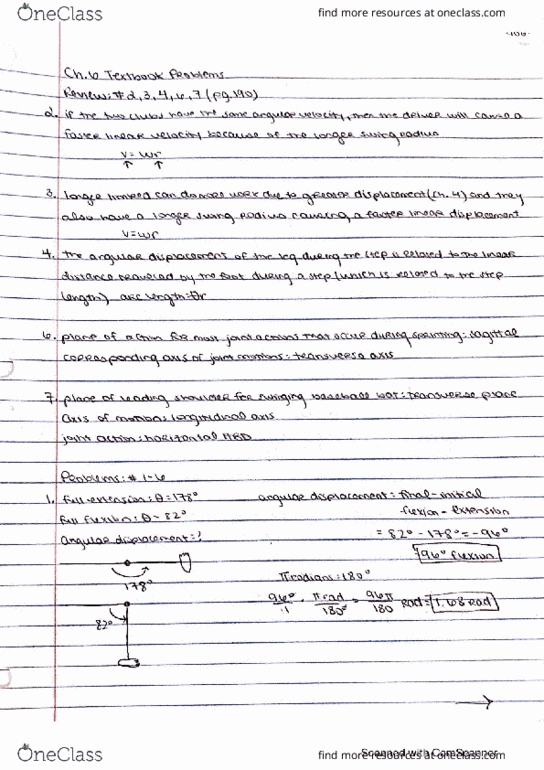 OneClass
find more resources at oneclass.com
Ch.6 Textbook Problems
Review: #2,3,4,6,7 (pg.190)
2. if the two clubs have the same angular velocity, then the driver will cause a
faster linear velocity because of the longer swing radius
v = ωr
3. longer limbed can do more work due to greater displacement (ch. 4) and they
also have a longer swing radius causing a faster linear displacement
v=ωr
4. the angular displacement of the leg during the step is related to the linear
distance required by the foot during a step (which is related to the step
length) arc length=θr
6. plane of action for most joint actions that occur during sprinting: sagittal
corresponding axis of joint motions: transverse axis
7. plane of leading shoulder for swinging baseball bat: transverse plane
axis of motion: longitudinal axis
joint action: horizontal ABD
Problems: # 1-6
1. full extension: θ = 178°
angular displacement = final-initial
full flexion: θ = 82°
flexion - extension
angular displacement = ?
= 82° - 178° = -96°
96° flexion
178°
π radians = 180°
96°/1 · π rad/180° = 96π/180 rad = 1.68 rad
82°
OneClass
Scanned with CamScanner
find more resources at oneclass.com